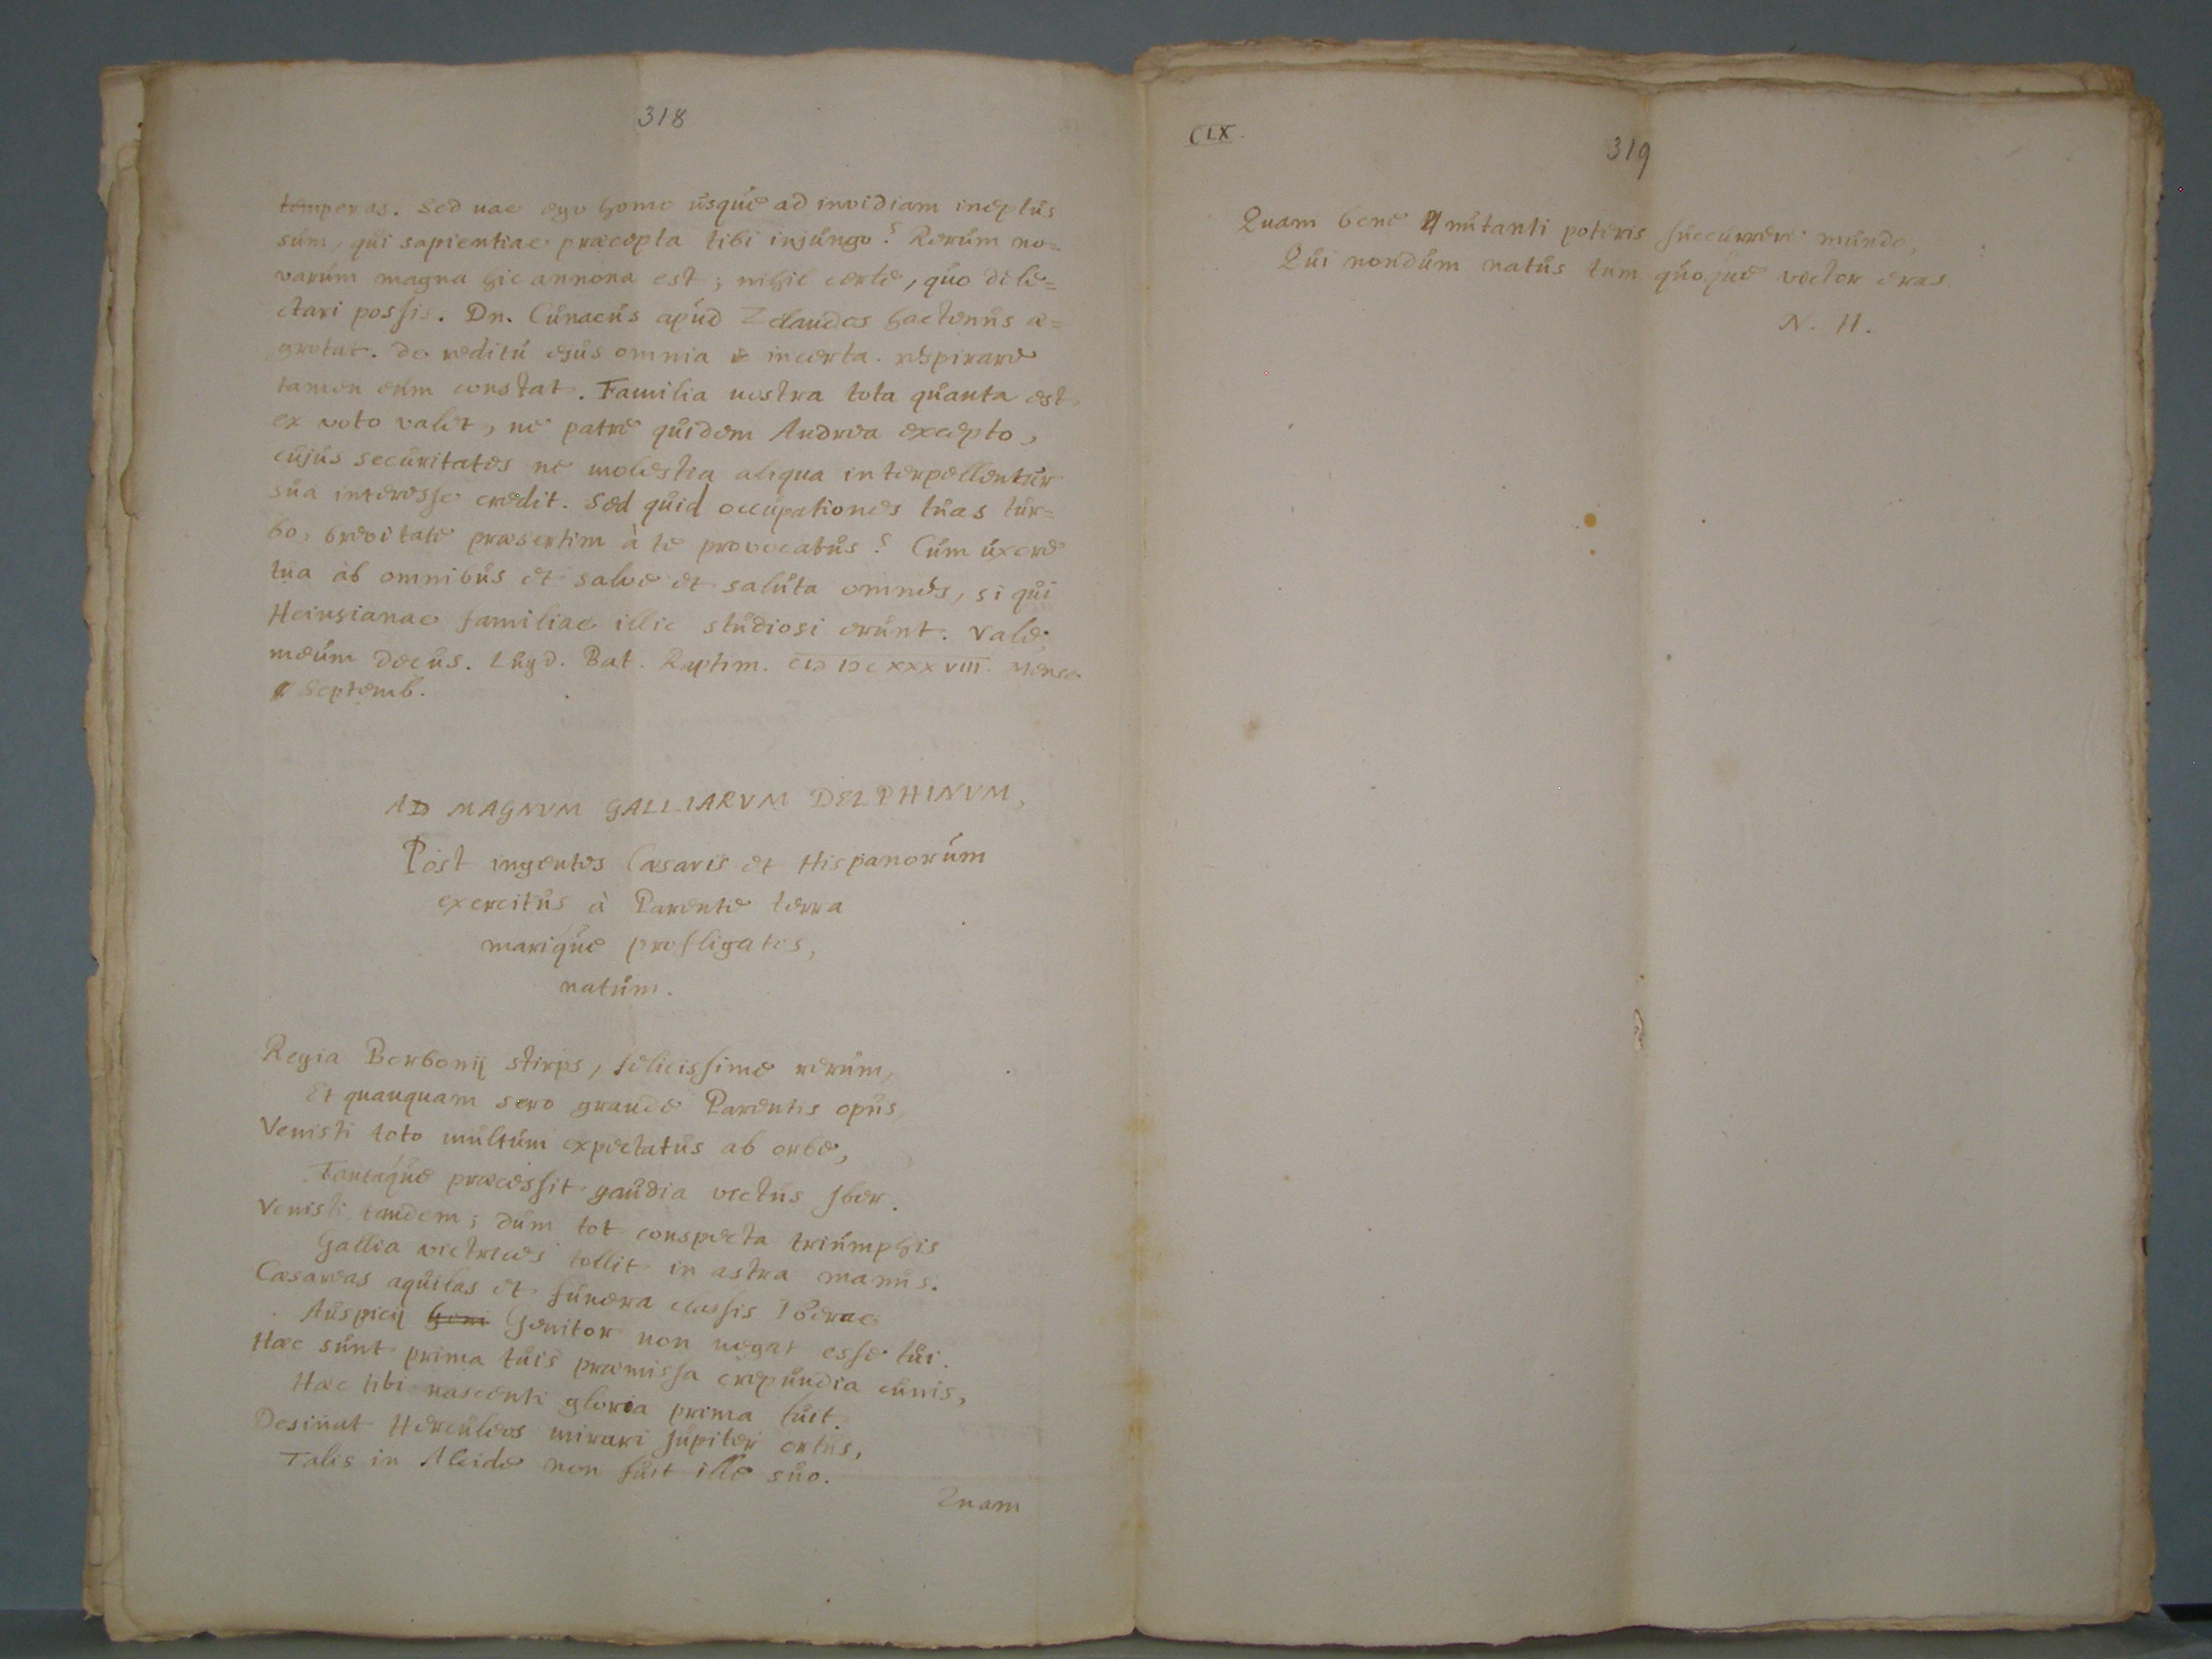 318
temperas. Sed nae ego homo usque ad invidiam ineptus
sum, qui sapientiae praecepta tibi injungo? Rerum no=
varum magna hic annona est; nihil certe, quo dele=
ctari possis. Dn. Cunaeus apud Zelandos hactenus ae=
grotat. de reditu ejus omnia incerta. respirare
tamen eum constat. Familia nostra tota quanta est
ex voto valet, ne patre quidem Andrea excepto,
cujus securitates ne molestia aliqua interpellentur
sua interesse credit. Sed quid occupationes tuas tur=
bo, brevitate praesertim à te provocatus? Cum uxore
tua ab omnibus et salve et saluta omnes, si qui
Heinsianae familiae illic studiosi erunt. Vale,
meum decus. Lugd. Bat. Raptim. CIƆ IƆC XXXVIII. Mense
Septemb.
AD MAGNVM GALLIARVM DELPHINVM,
Post ingentes Caesaris et Hispanorum
exercitus à Parente terra
marique profligatos,
natum.
Regia Borbonij stirps, felicissime rerum,
Et quanquam sero grande Parentis opus,
Venisti toto multum expectatus ab orbe,
Tantaque praecessit gaudia victus Iber.
Venisti tandem; dum tot conspecta triumphis
Gallia victrices tollit in astra manus.
Caesareas aquilas et funera classis Iberae
Auspicij Geni Genitor non negat esse tui.
Haec sunt prima tuis praemissa crepundia cunis,
Haec tibi nascenti gloria prima fuit.
Desinat Herculeos mirari Jupiter ortus,
Talis in Alcide non fuit ille suo.
Quam
CLX.
319
Quam bene nutanti poteris succurrere mundo,
Qui nondum natus tum quoque victor eras.
N. H.